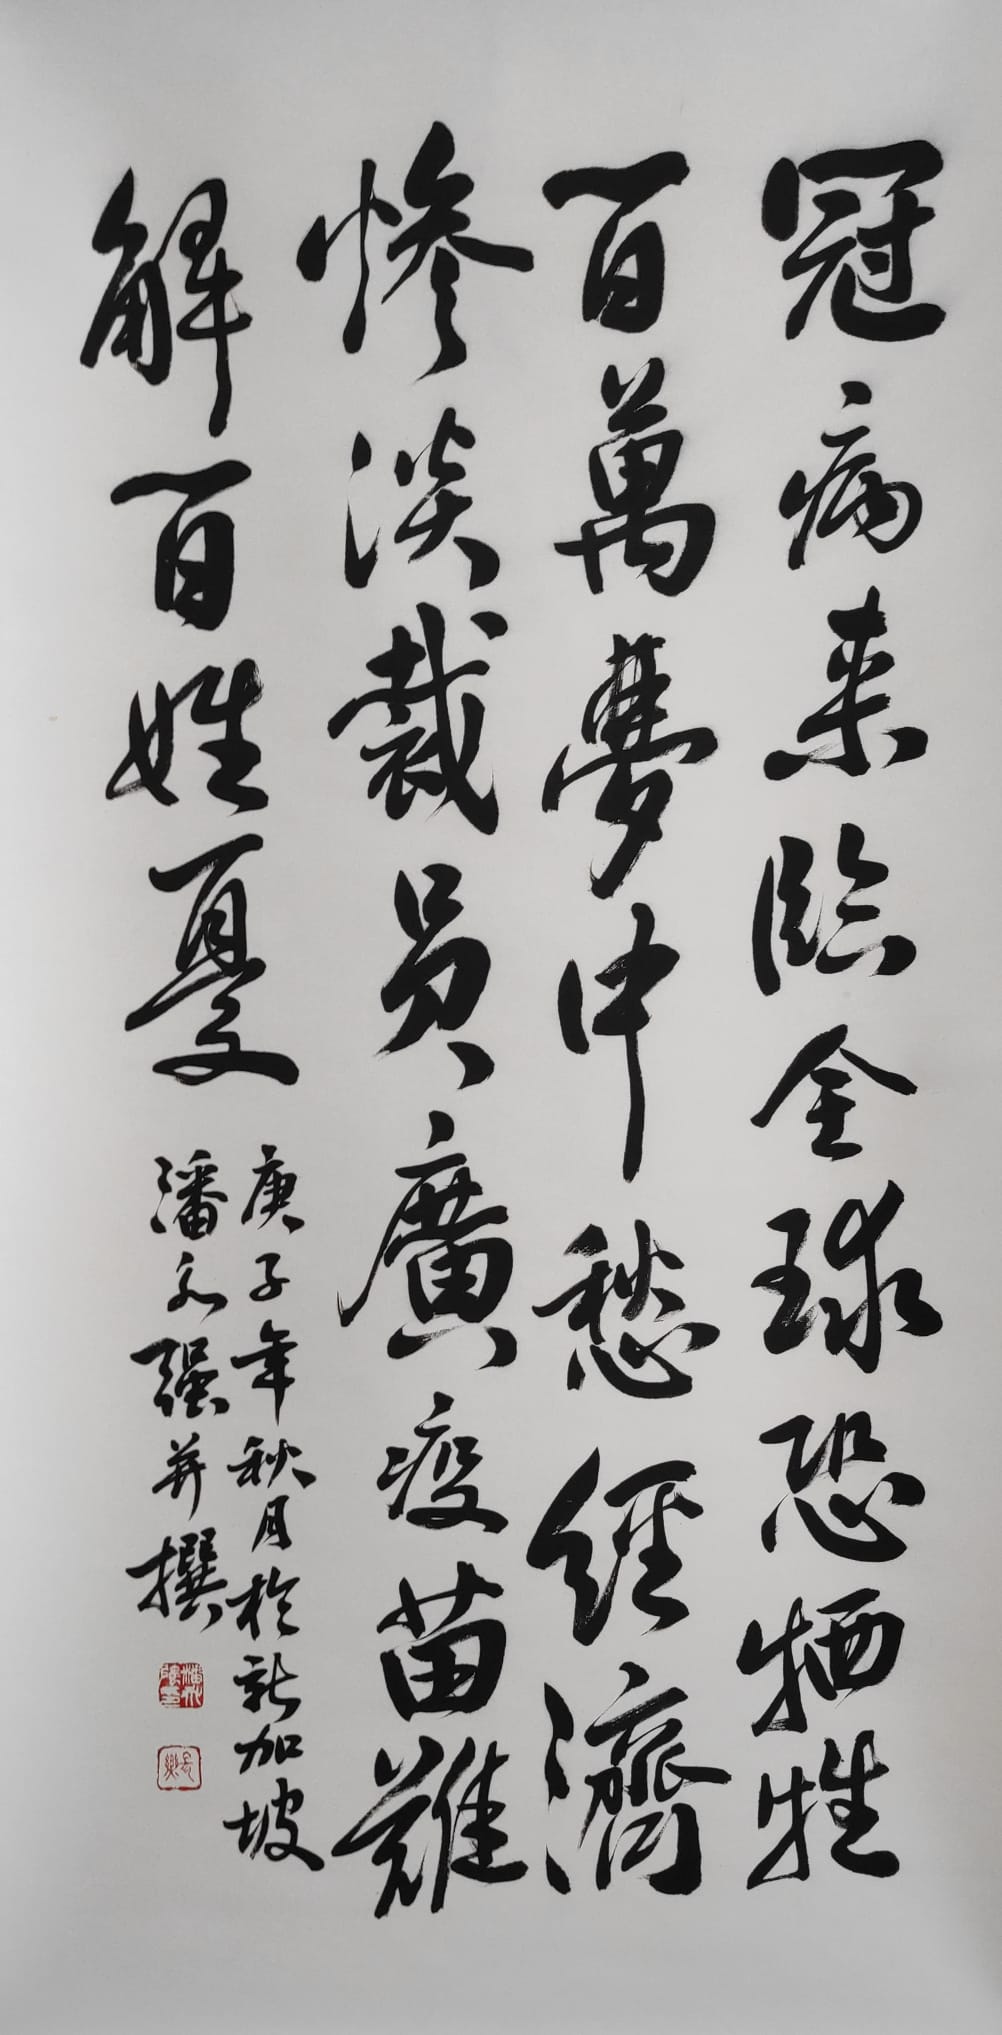 冠病来臨全球恐牺牲
百萬夢中愁經濟
惨淡裁员廣疫苗難
解百姓憂
庚子年秋月於新加坡
潘永强并撰